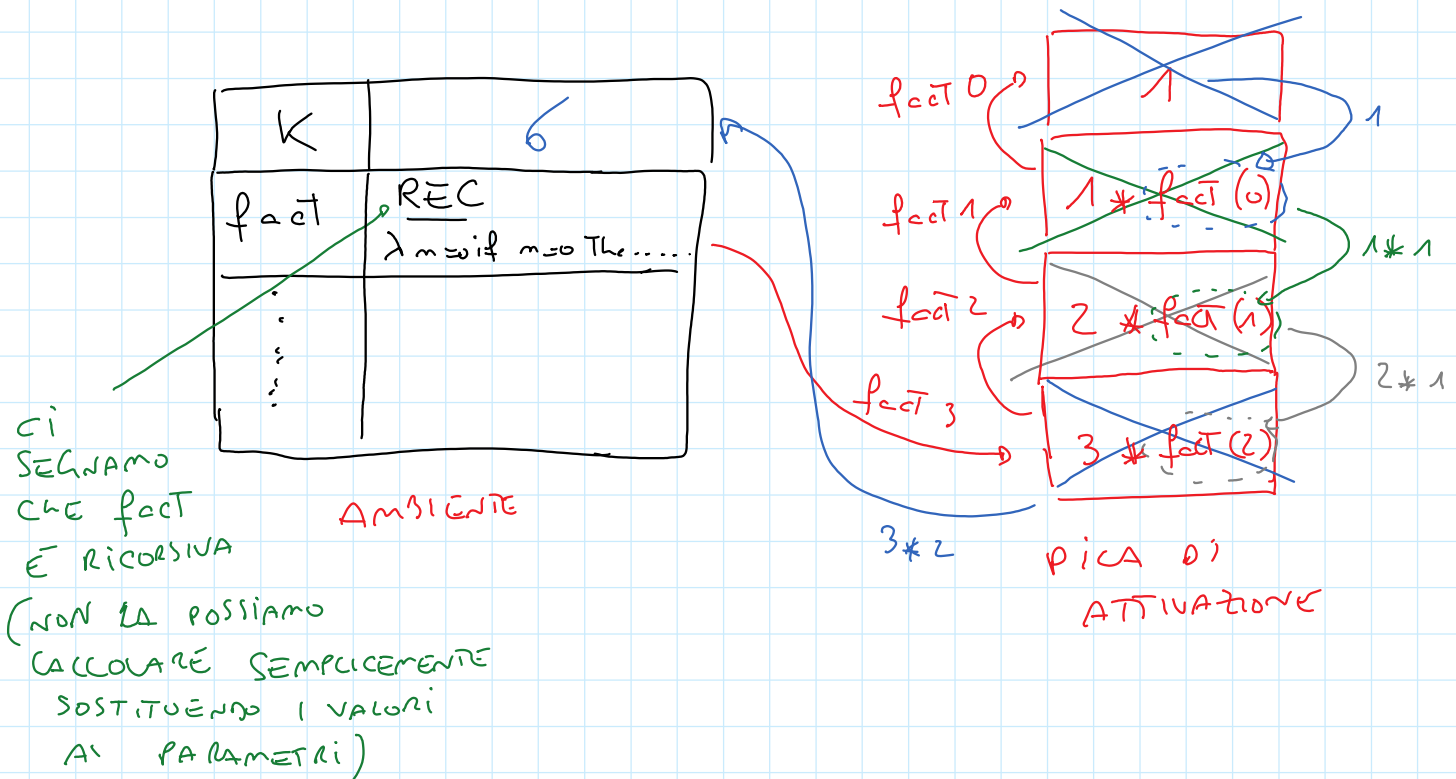 K 6
fact REC
λ n => if n=0 The.....
AMBIENTE
CI
SEGNAMO
CHE fact
È RICORSIVA
(NON LA POSSIAMO
CALCOLARE SEMPLICEMENTE
SOSTITUENDO I VALORI
AI PARAMETRI)
fact 0
1
1
fact 1
1 * fact (0)
1*1
fact 2
2 * fact (1)
2*1
fact 3
3 * fact (2)
3*2
PILA DI
ATTIVAZIONE